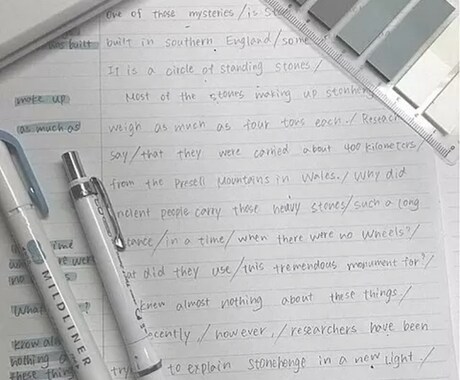 one of those mysteries / is
built built in southern England / some
It is a circle of standing stones /
make up Most of the stones making up
as much as weigh as much as four tons each. /
say / that they were carried about 400 kilometers /
from the Preseli Mountains in Wales. / Why did
ancient people carry those heavy stones / such a long
/ in a time / when there were no wheels? /
were
did they use / this tremendous monument for? /
What
knew almost nothing about these things /
know
recently, / however, / researchers have been
nothing
these to explain Stonehenge in a new light. /
MILDLINER